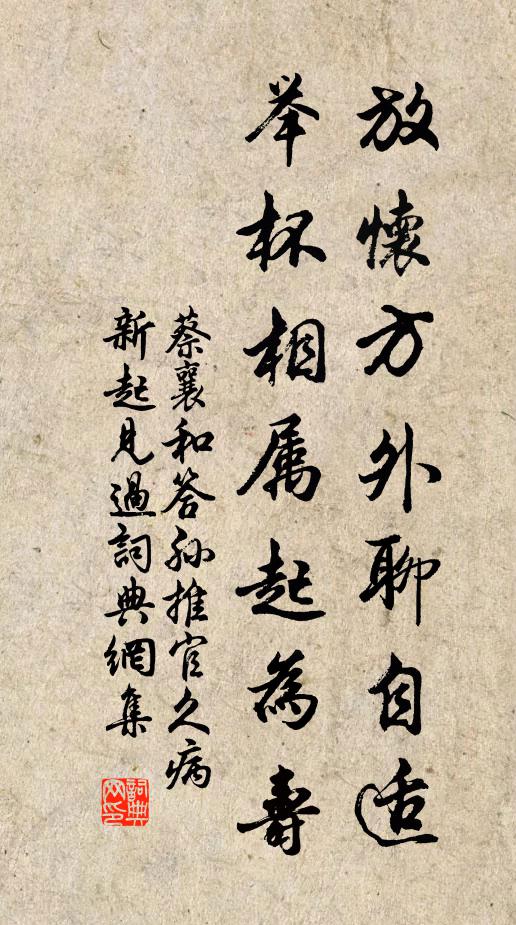 放懷方外聊自适
举杯相属起為壽
蔡襄和答孙推官久病
新起見過詞典網集
詞典網印